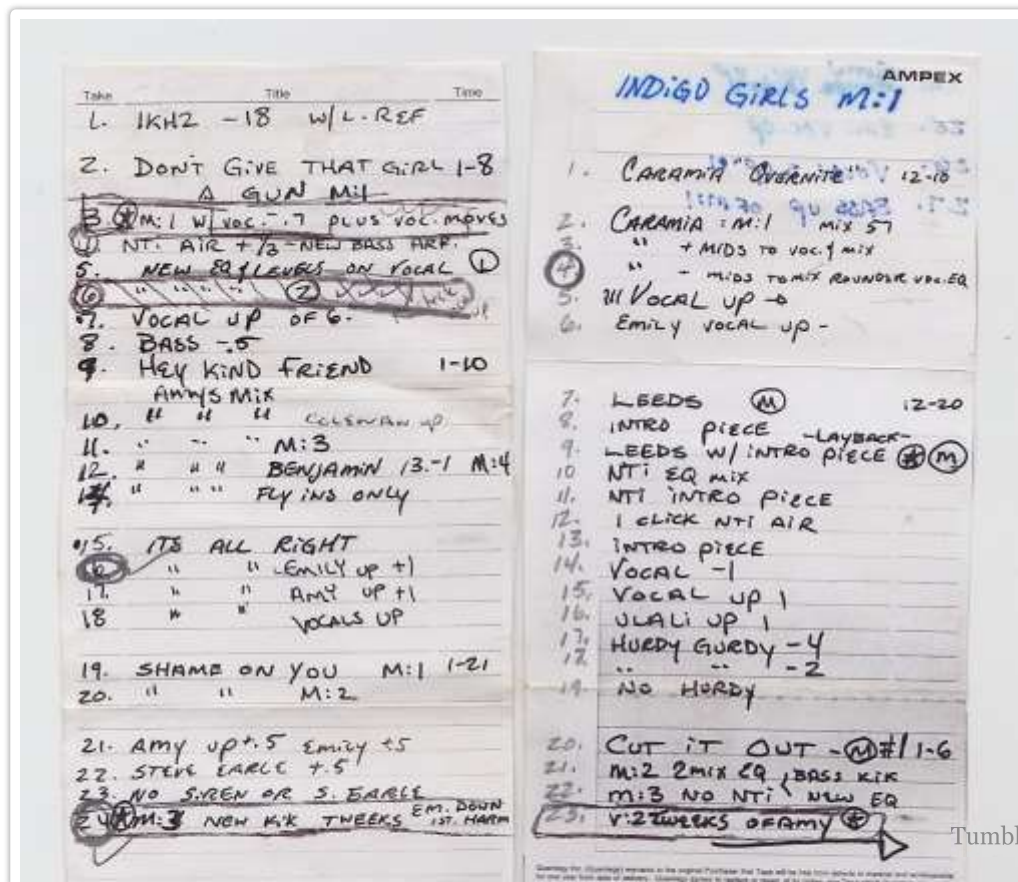 Take Title Time
1. 1KHZ -18 W/L-REF
2. DON'T GIVE THAT GIRL 1-8
A GUN M:1
3 M:1 W/ VOC -.7 PLUS VOC. MOVES
4 NTi AIR + 1/3 - NEW BASS
5. NEW EQ & LEVELS ON VOCAL 1
6 " " " " 2
7. VOCAL UP OF 6.
8. BASS -.5
9. HEY KIND FRIEND 1-10
AMYS MIX
10. " " " UP
11. " " " M:3
12. " " " BENJAMIN 13.-1 M:4
" " " FLY INS ONLY
15. ITS ALL RiGHT
16 " " EMILY UP +1
17. " " AMY UP +1
18 " " VOCALS UP
19. SHAME ON YOU M:1 1-21
20. " " M:2
21. AMY UP +.5 EMILY +5
22. STEVE EARLE +.5
23. NO SIREN OR S. EARLE
24 * M:3 NEW KiK TWEEKS EM. DOWN
1ST. HARM
AMPEX
INDiGO GiRLS M:1
1. CARAMIA OVERNITE 12-10
2. CARAMIA : M:1 MIX 57
3. " + MIDS TO VOC. & MIX
4 " - MIDS TO MIX ROUNDER VOC. EQ
5. VOCAL UP
6. EMILY VOCAL UP -
7. LEEDS M 12-20
8. INTRO PIECE -LAYBACK-
9. LEEDS W/ INTRO PIECE * M
10 NTi EQ MIX
11. NTi INTRO PiECE
12. 1 CLICK NTi AIR
13. INTRO PIECE
14. VOCAL -1
15. VOCAL UP 1
16. ULALI UP 1
17. HURDY GURDY -4
17. " " -2
19. NO HURDY
20. CUT iT OUT - M #1 1-6
21. M:2 2MIX EQ, BASS KIK
22. M:3 NO NTi NEW EQ
23. V:2 TWEEKS OF AMY *
Tumbl